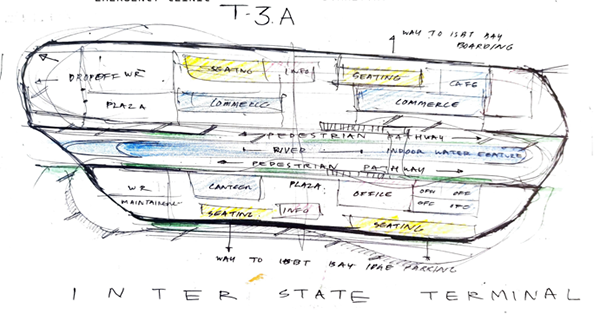 EMERGENCY CLINIC
T-3.A
WAY TO ISBT BAY
BOARDING
DROPOFF WR SEATNG INFO SEATING CAFE
PLAZA COMMERCE COMMERCE
PEDESTRIAN PATHWAY
RIVER INDOOR WATER FEATURE
PEDESTRIAN PATHWAY
WR CANTEEN PLAZA OFFICE OFF OFF
MAINTAINENC SEATING INFO OFC
SEATING
WAY TO ISBT BAY IDLE PARKING
INTER STATE TERMINAL